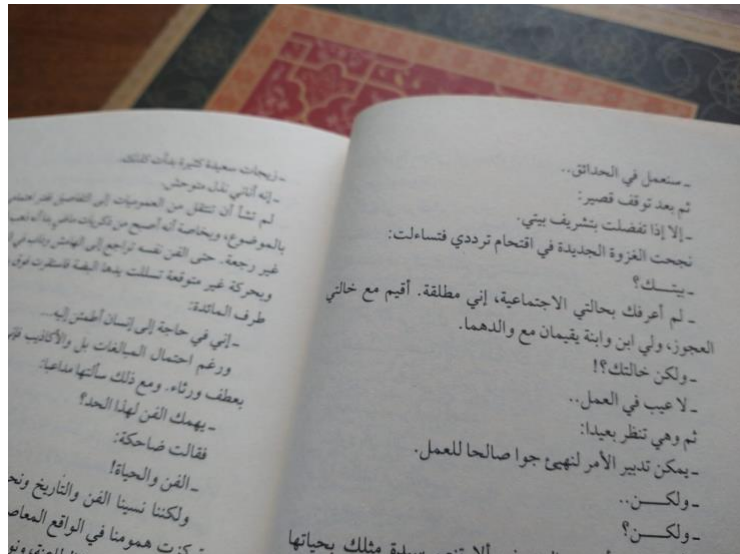 - سنعمل في الحدائق..
ثم بعد توقف قصير:
- إلا إذا تفضلت بتشريف بيتي.
نجحت الغزوة الجديدة في اقتحام ترددي فتساءلت:
- بيتـــك؟
- لم أعرفك بحالتي الاجتماعية، إني مطلقة. أقيم مع خالتي
العجوز، ولي ابن وابنة يقيمان مع والدهما.
- ولكن خالتك؟!
- لا عيب في العمل..
ثم وهي تنظر بعيدا:
- يمكن تدبير الأمر لنهيئ جوا صالحا للعمل.
- ولكـــن..
- ولكـــن؟
سيدة مثلك بحياتها
- زيجات سعيدة كثيرة بدأت كذلك.
- إنه أناني نذل متوحش.
لم تشأ أن تنتقل من العموميات إلى التفاصيل
بالموضوع، وبخاصة أنه أصبح من ذكريات ماض
غير رجعة. حتى الفن نفسه تراجع إلى الهامش
وبحركة غير متوقعة تسللت يدها البضة فاستقرت فوق
طرف المائدة:
- إني في حاجة إلى إنسان أطمئن إليه...
ورغم احتمال المبالغات بل والأكاذيب
بعطف ورثاء. ومع ذلك سألتها مداعبا:
- يهمك الفن لهذا الحد؟
فقالت ضاحكة:
- الفن والحياة!
ولكننا نسينا الفن والتاريخ
تركزت همومنا في الواقع